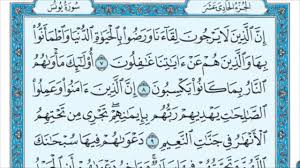 سُورَةُ يُونُسَ الجُزْءُ الحَادِي عَشَرَ
إِنَّ ٱلَّذِينَ لَا يَرْجُونَ لِقَآءَنَا وَرَضُوا۟ بِٱلْحَيَوٰةِ ٱلدُّنْيَا وَٱطْمَأَنُّوا۟
بِهَا وَٱلَّذِينَ هُمْ عَنْ ءَايَٰتِنَا غَٰفِلُونَ ٧ أُو۟لَٰٓئِكَ مَأْوَىٰهُمُ
ٱلنَّارُ بِمَا كَانُوا۟ يَكْسِبُونَ ٨ إِنَّ ٱلَّذِينَ ءَامَنُوا۟ وَعَمِلُوا۟
ٱلصَّٰلِحَٰتِ يَهْدِيهِمْ رَبُّهُم بِإِيمَٰنِهِمْ تَجْرِى مِن تَحْتِهِمُ
ٱلْأَنْهَٰرُ فِى جَنَّٰتِ ٱلنَّعِيمِ ٩ دَعْوَىٰهُمْ فِيهَا سُبْحَٰنَكَ